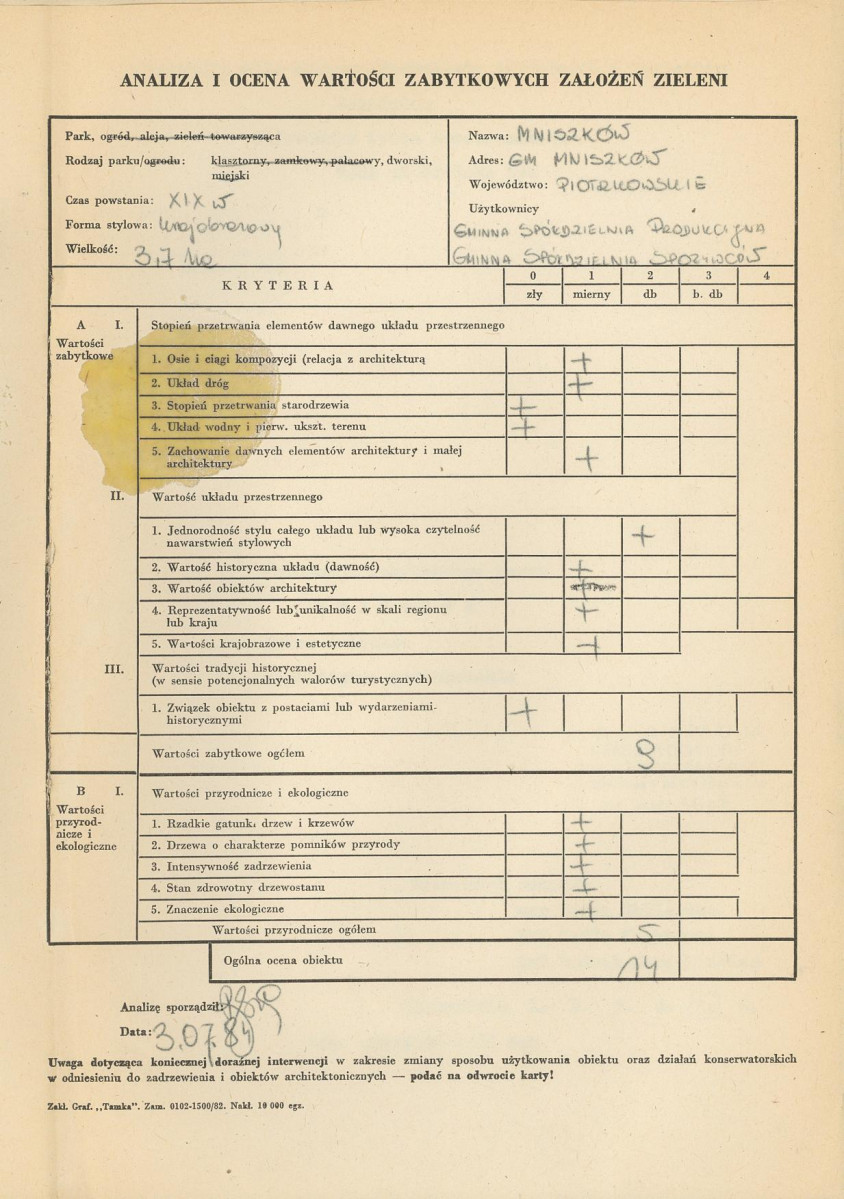 ANALIZA I OCENA WARTOŚCI ZABYTKOWYCH ZAŁOŻEŃ ZIELENI
Park, ogród, aleja, zieleń towarzysząca
Rodzaj parku/ogrodu: klasztorny, zamkowy, pałacowy, dworski,
miejski
Czas powstania: XIX w
Forma stylowa: krajobrazowy
Wielkość: 3,7 ha
Nazwa: MNISZKÓW
Adres: GM MNISZKÓW
Województwo: PIOTRKOWSKIE
Użytkownicy
GMINNA SPÓŁDZIELNIA PRODUKCYJNA
GMINNA SPÓŁDZIELNIA SPOŻYWCÓW
KRYTERIA
0 1 2 3 4
zły mierny db b. db
A I. Stopień przetrwania elementów dawnego układu przestrzennego
Wartości
zabytkowe
1. Osie i ciągi kompozycji (relacja z architekturą +
2. Układ dróg +
3. Stopień przetrwania starodrzewia +
4. Układ wodny i pierw. ukszt. terenu +
5. Zachowanie dawnych elementów architektury i małej
architektury +
II. Wartość układu przestrzennego
1. Jednorodność stylu całego układu lub wysoka czytelność
nawarstwień stylowych +
2. Wartość historyczna układu (dawność) +
3. Wartość obiektów architektury
4. Reprezentatywność lub unikalność w skali regionu
lub kraju +
5. Wartości krajobrazowe i estetyczne +
III. Wartości tradycji historycznej
(w sensie potencjonalnych walorów turystycznych)
1. Związek obiektu z postaciami lub wydarzeniami-
historycznymi +
Wartości zabytkowe ogółem 9
B I. Wartości przyrodnicze i ekologiczne
Wartości
przyrod-
nicze i
ekologiczne
1. Rzadkie gatunki drzew i krzewów +
2. Drzewa o charakterze pomników przyrody +
3. Intensywność zadrzewienia +
4. Stan zdrowotny drzewostanu +
5. Znaczenie ekologiczne +
Wartości przyrodnicze ogółem 5
Ogólna ocena obiektu 14
Analizę sporządził:
Data: 3.07.84
Uwaga dotycząca koniecznej doraźnej interwencji w zakresie zmiany sposobu użytkowania obiektu oraz działań konserwatorskich
w odniesieniu do zadrzewienia i obiektów architektonicznych — podać na odwrocie karty!
Zakł. Graf. „Tamka”. Zam. 0102-1500/82. Nakł. 10 000 egz.